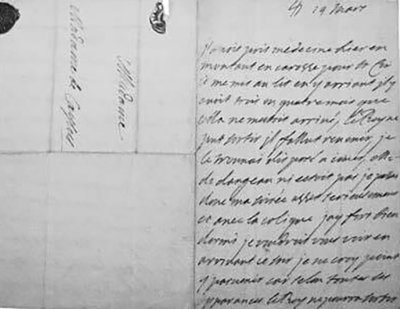 Madame
Madame de Caylus
19 mars
J'avois pris medecine hier en
montant en carosse pour St Cir
je me mis au lit en y arrivant il y
avoit trois ou quatre mois que
cela ne m'estoit arrivé, le Roy ne
put sortir il fallut revenir, je
le trouvai disposé a causer, Me
de dangeau n'i estoit pas je passai
donc ma soirée assez serieusement
et avec la colique jay fort bien
dormi je voudrois vous voir en
arrivant ce soir je ne croy point
y parvenir car selon toutes les
apparances le Roy ne pourra sortir